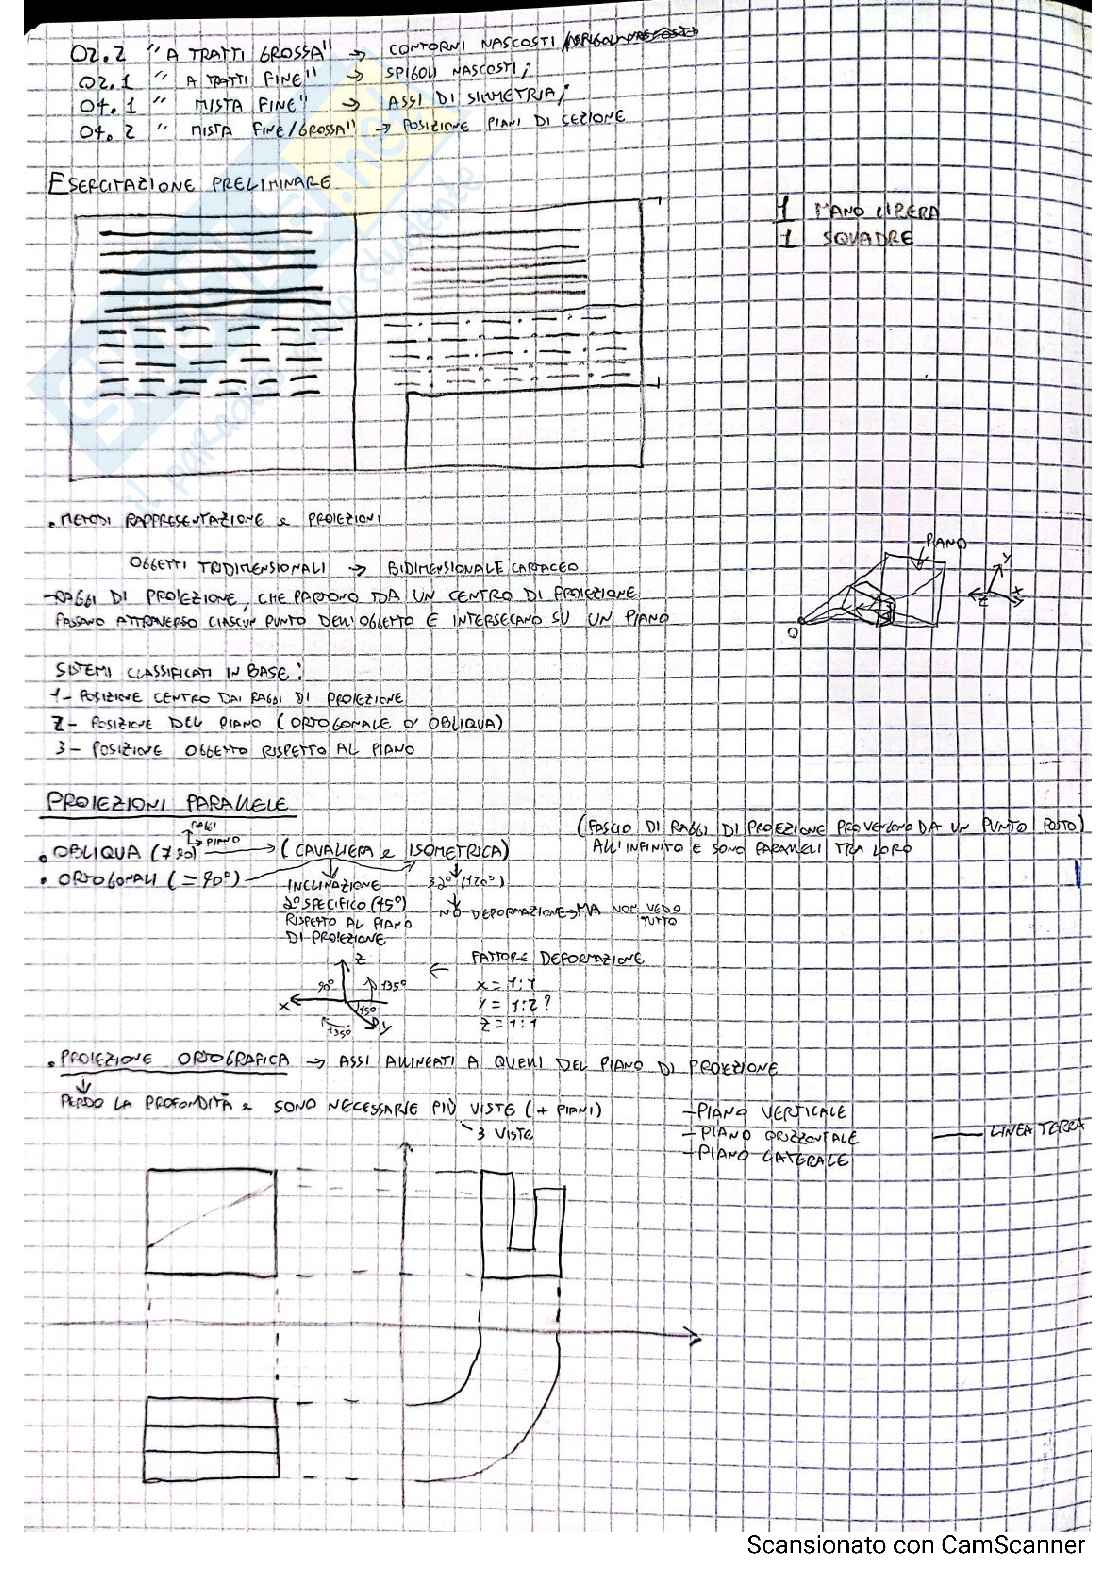 02.2 "A TRATTI GROSSA" → CONTORNI NASCOSTI
02.1 " A TRATTI FINE" → SPIGOLI NASCOSTI;
04.1 " MISTA FINE" → ASSI DI SIMMETRIA;
04.2 " MISTA FINE/GROSSA" → POSIZIONE PIANI DI SEZIONE
ESERCITAZIONE PRELIMINARE
1 MANO LIBERA
1 SQUADRE
• METODI RAPPRESENTAZIONE e PROIEZIONI
PIANO
Y
X
Z
O
OGGETTI TRIDIMENSIONALI → BIDIMENSIONALE CARTACEO
- RAGGI DI PROIEZIONE, CHE PARTONO DA UN CENTRO DI PROIEZIONE
PASSANO ATTRAVERSO CIASCUN PUNTO DELL'OGGETTO E INTERSECANO SU UN PIANO
SISTEMI CLASSIFICATI IN BASE:
1- POSIZIONE CENTRO DAI RAGGI DI PROIEZIONE
2- POSIZIONE DEL PIANO (ORTOGONALE O OBLIQUA)
3- POSIZIONE OGGETTO RISPETTO AL PIANO
PROIEZIONI PARALLELE
(FASCIO DI RAGGI DI PROIEZIONE PROVENGONO DA UN PUNTO POSTO)
ALL'INFINITO E SONO PARALLELI TRA LORO
RAGGI
PIANO
• OBLIQUA (≠90) → (CAVALIERA e ISOMETRICA)
• ORTOGONALI (=90°)
INCLINAZIONE
SPECIFICO (45°)
RISPETTO AL PIANO
DI PROIEZIONE
(120°)
NO DEFORMAZIONE → MA NON VEDO
TUTTO
← FATTORE DEFORMAZIONE
X = 1:1
Y = 1:2?
Z = 1:1
Z
90°
135°
X
45°
135°
Y
• PROIEZIONE ORTOGRAFICA → ASSI ALLINEATI A QUELLI DEL PIANO DI PROIEZIONE
PERDO LA PROFONDITÀ e SONO NECESSARIE PIÙ VISTE (+ PIANI)
3 VISTE
- PIANO VERTICALE
- PIANO ORIZZONTALE
- PIANO LATERALE
LINEA TERRA
Scansionato con CamScanner